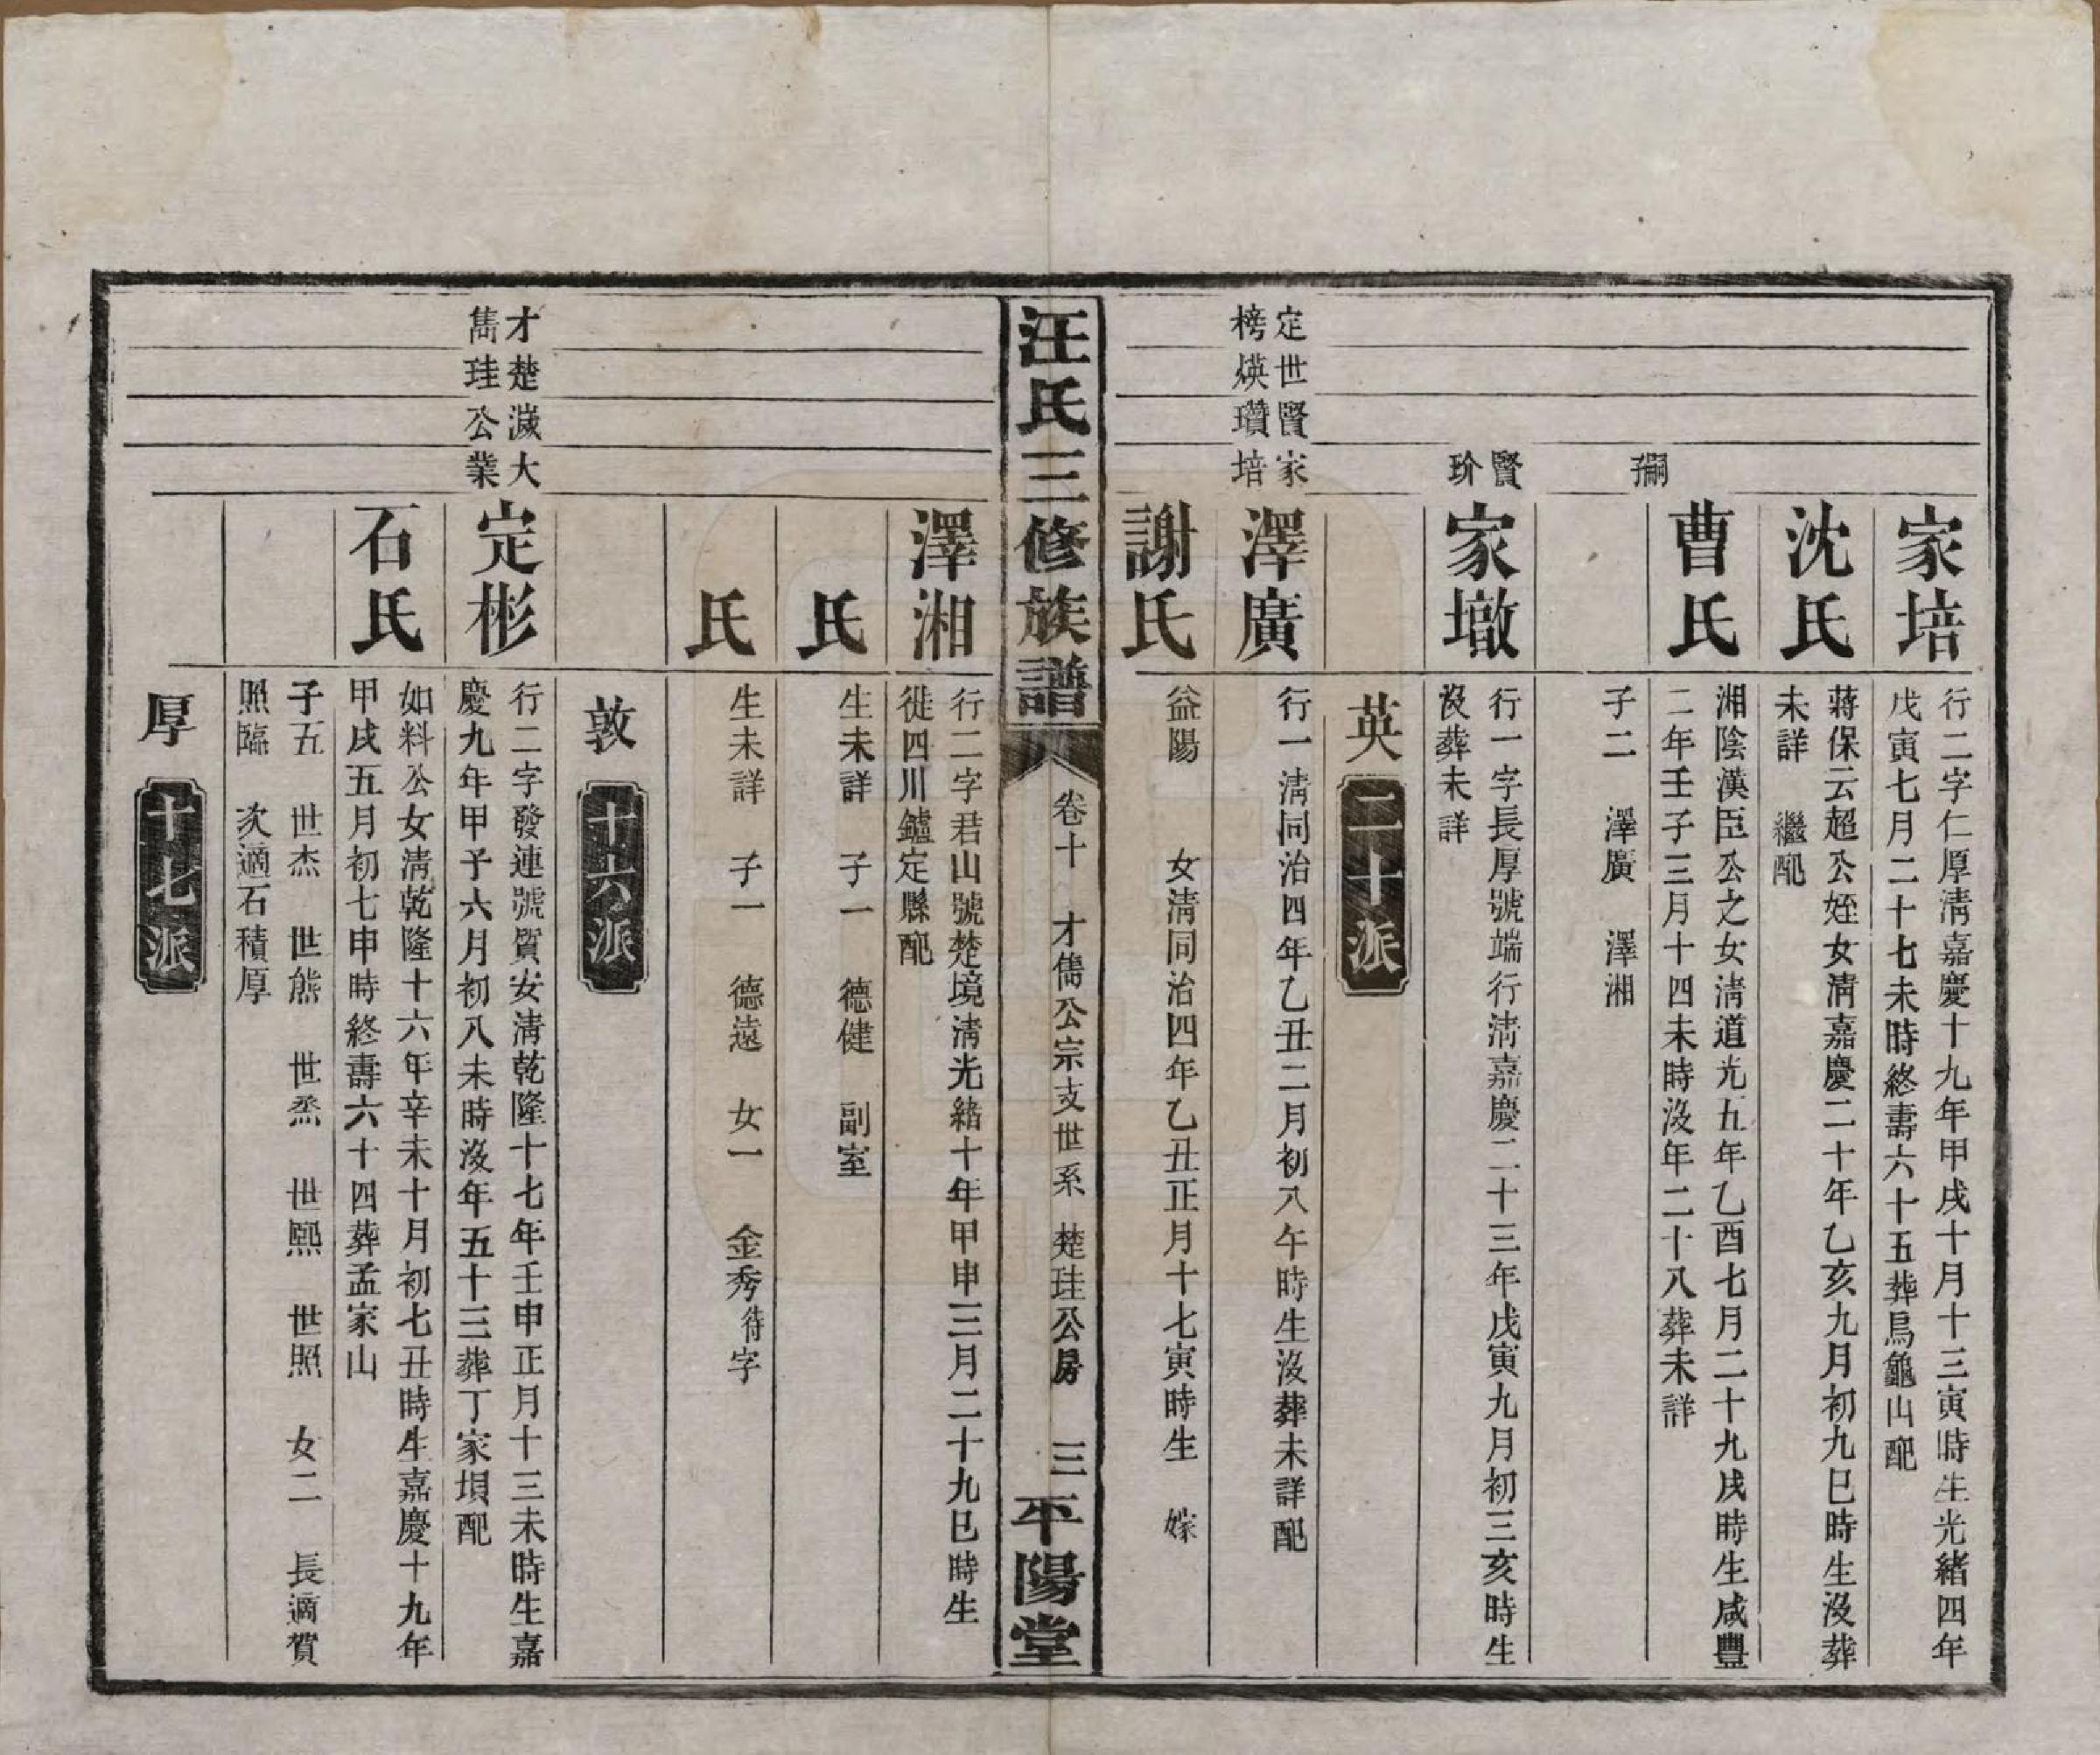 家培
行二字仁厚淸嘉慶十九年甲戌十月十三寅時生光緖四年
戊寅七月二十七未時終壽六十五葬烏龜山配
沈氏
蔣保云超公姪女淸嘉慶二十年乙亥九月初九巳時生沒葬
未詳　繼配
曹氏
湘陰漢臣公之女淸道光五年乙酉七月二十九戌時生咸豐
二年壬子三月十四未時沒年二十八葬未詳
嗣
子二　澤廣　澤湘
賢
玠
家墩
行一字長厚號端行淸嘉慶二十三年戊寅九月初三亥時生
沒葬未詳
英　二十派
定世賢家
榜煐瓚培
澤廣
行一淸同治四年乙丑二月初八午時生沒葬未詳配
謝氏
益陽　　女淸同治四年乙丑正月十七寅時生　嫁
汪氏三修族譜　卷十　才雋公宗支世系　楚珪公房　三　平陽堂
澤湘
行二字君山號楚境淸光緖十年甲申三月二十九巳時生
徙四川鑪定縣配
氏
生未詳　子一　德健　副室
氏
生未詳　子一　德遠　女一　金秀待字
敦　十六派
才楚滅大
雋珪公業
定彬
行二字發連號質安淸乾隆十七年壬申正月十三未時生嘉
慶九年甲子六月初八未時沒年五十三葬丁家垻配
石氏
如料公女淸乾隆十六年辛未十月初七丑時生嘉慶十九年
甲戌五月初七申時終壽六十四葬孟家山
子五　世杰　世熊　世烝　世熙　世照　女二　長適賀
照臨　次適石積厚
厚　十七派